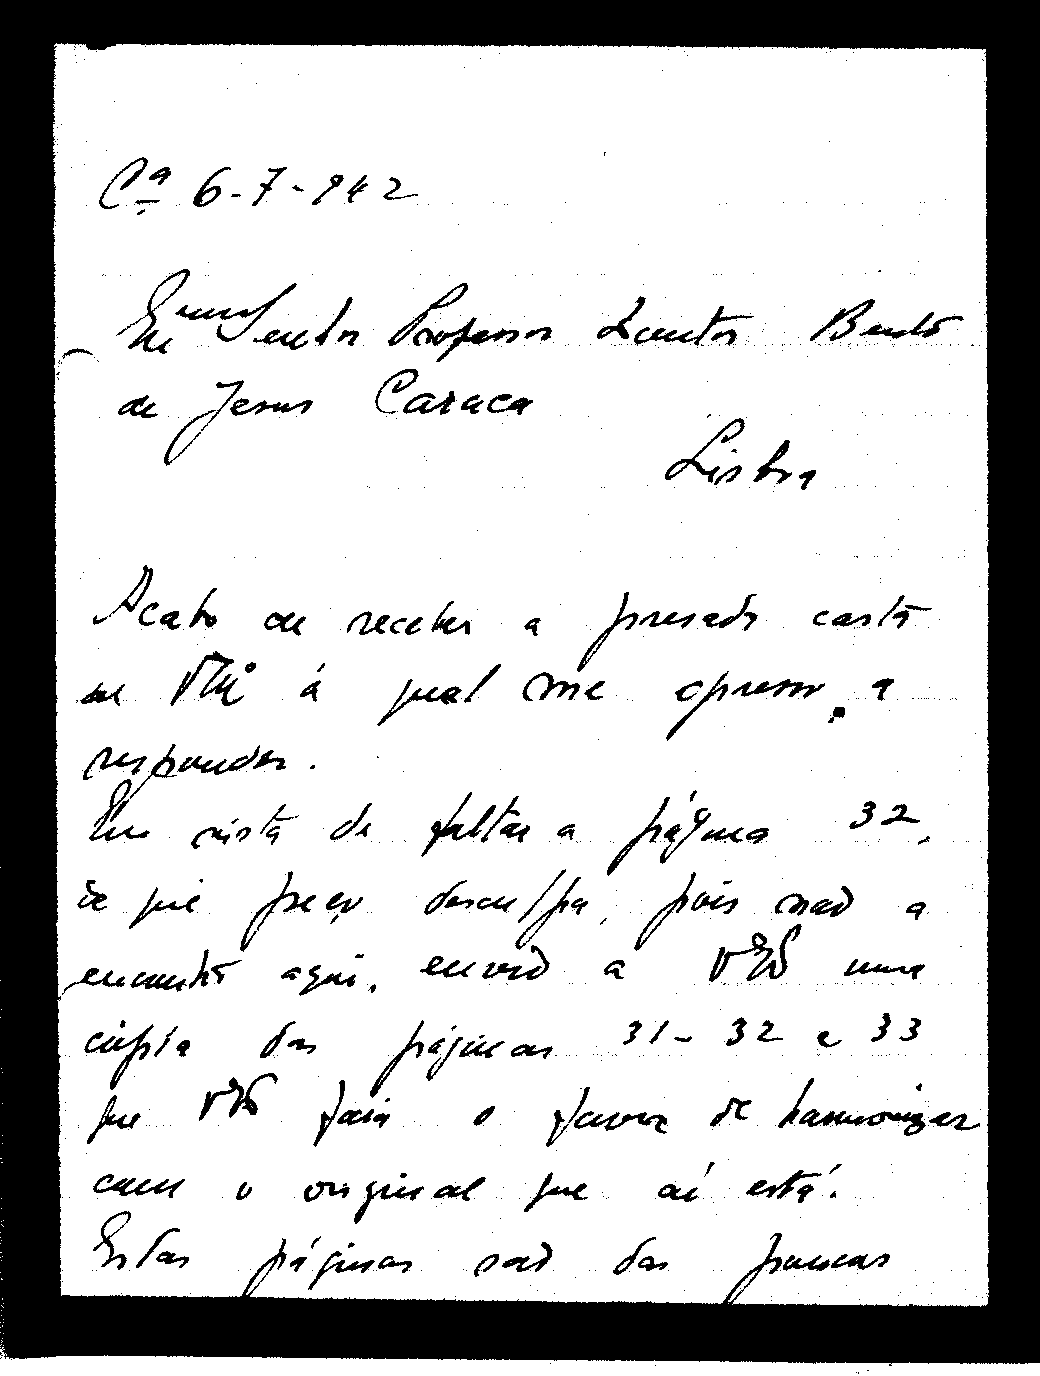 Cª 6-7-942
Exmo Senhor Professor Doutor Bento
de Jesus Caraça
Lisboa
Acabo de receber a presada carta
de VExª á qual me apresso a
responder.
Em vista de faltar a página 32,
de que peço desculpa, pois não a
encontro aqui, envio a VExª uma
cópia das páginas 31-32 e 33
que VExª fará o favor de harmonizar
com o original que aí está.
Estas páginas são das poucas